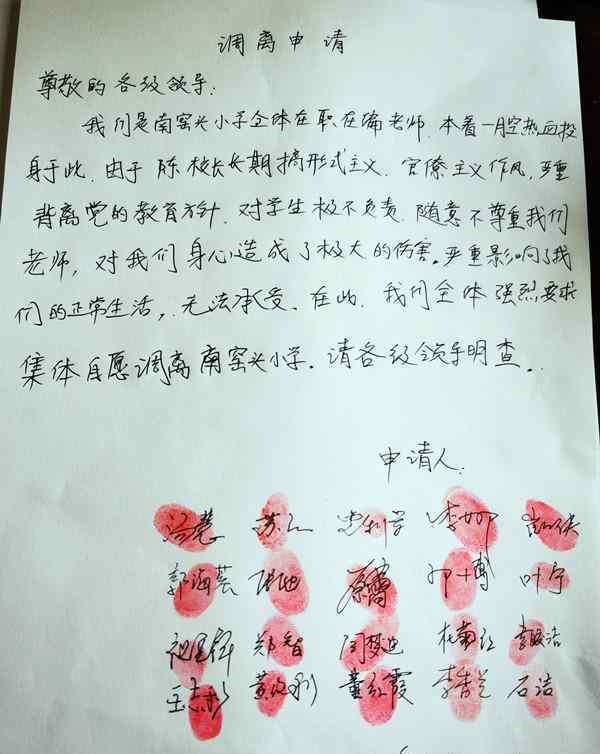 调离申请
尊敬的各级领导：
我们是南窑头小学全体在职在编老师，本着一腔热血投
身于此，由于陈校长长期搞形式主义，官僚主义作风，严重
背离党的教育方针，对学生极不负责，随意不尊重我们
老师，对我们身心造成了极大的伤害。严重影响了我
们的正常生活，无法承受。在此，我们全体强烈要求
集体自愿调离南窑头小学。请各级领导明查。
申请人：
李娜
郭海芸 叶宁
郑智 闫梦迪
王志彤 董红霞 石洁